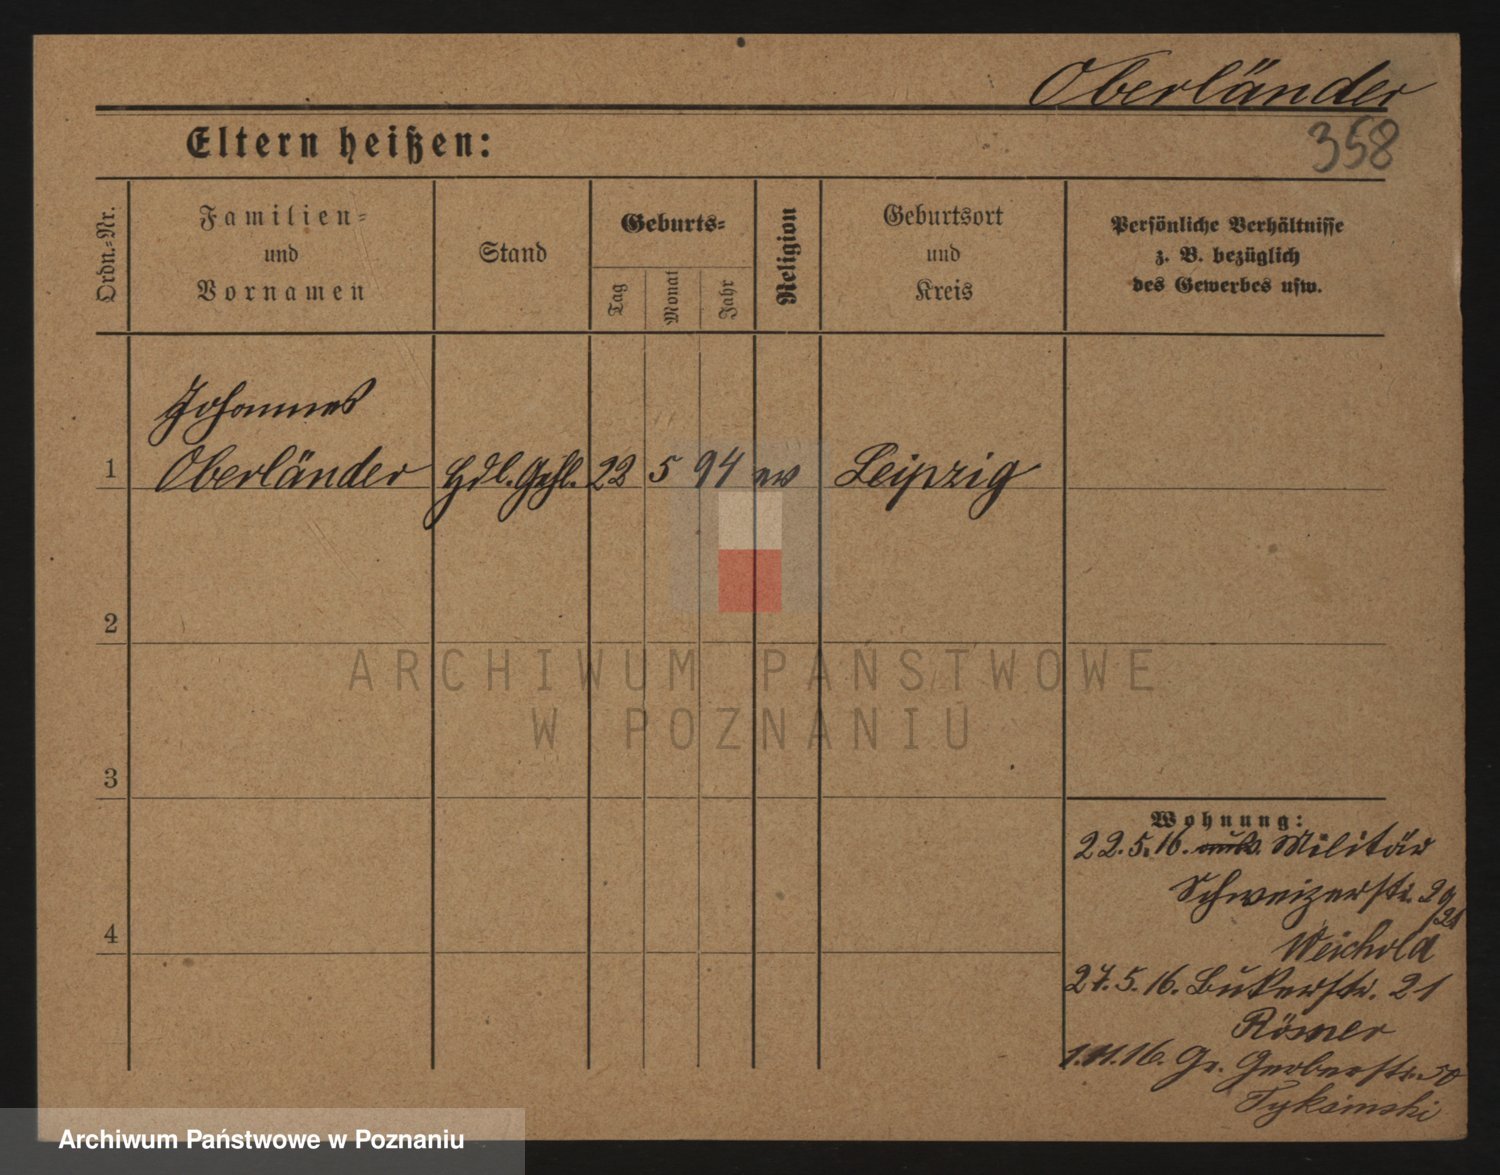 Oberländer
Eltern heißen:
358
Ordn.-Nr.
Familien-
und
Vornamen
Stand
Geburts-
Tag
Monat
Jahr
Religion
Geburtsort
und
Kreis
Persönliche Verhältnisse
z. B. bezüglich
des Gewerbes usw.
Johannes
1 Oberländer Hdl. Gehl. 22 5 94 ev Leipzig
2
ARCHIWUM PAŃSTWOWE
W POZNANIU
3
Wohnung:
22.5.16. Militär
Schweizerstr. 20
/21
4
Weichold
27.5.16. Bukerstr. 21
Römer
1.11.16. Gr. Gerberstr. 50
Archiwum Państwowe w Poznaniu